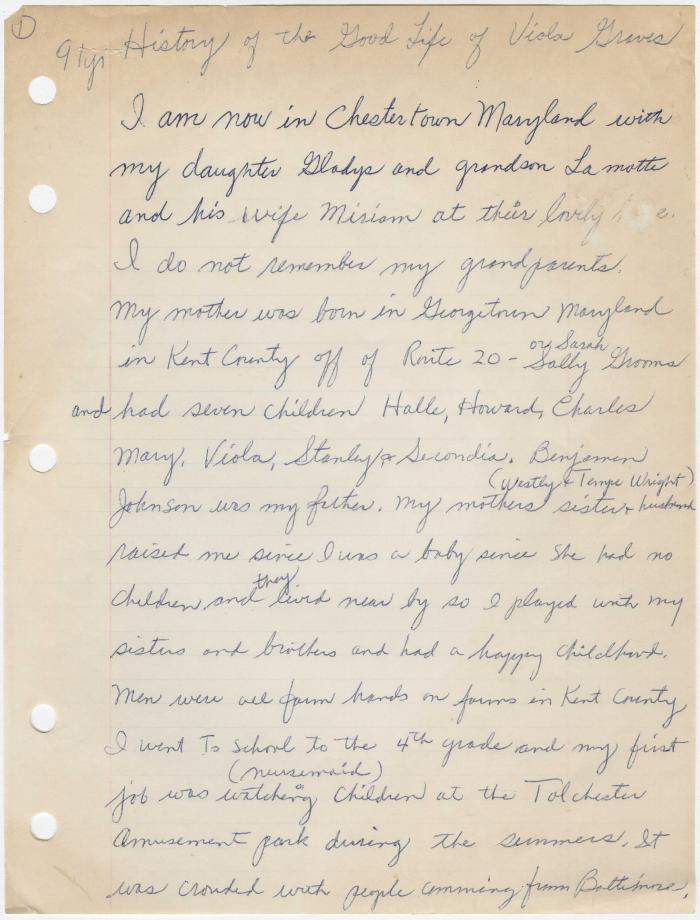 1
91 yrs History of the Good Life of Viola Graves
I am now in Chestertown Maryland with
my daughter Gladys and grandson Lamotte
and his wife Miriam at their lovely
I do not remember my grandparents.
My mother was born in Georgetown Maryland
or Sarah
in Kent County off of Route 20 - Sally Grooms
and had seven children Halle, Howard, Charles
Mary, Viola, Stanley & Secondia. Benjamen
(Westly & Tempe Wright)
Johnson was my father. My mothers sister & husband
raised me since I was a baby since she had no
they
children, and lived near by so I played with my
sisters and brothers and had a happy childhood.
Men were all farm hands on farms in Kent County
I went to school to the 4th grade and my first
(nursemaid)
job was watching children at the Tolchester
Amusement park during the summers. It
was crowded with people comming from Baltimore,